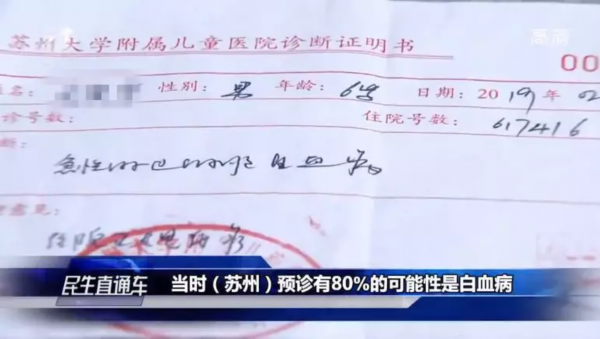 高清
苏州大学附属儿童医院诊断证明书
00
名: 性别: 男 年龄: 6岁 日期: 2019年 02
诊号数: 住院号数: 617416
断:
急性淋巴细胞白血病
意见:
住院
民生直通车 当时（苏州）预诊有80%的可能性是白血病